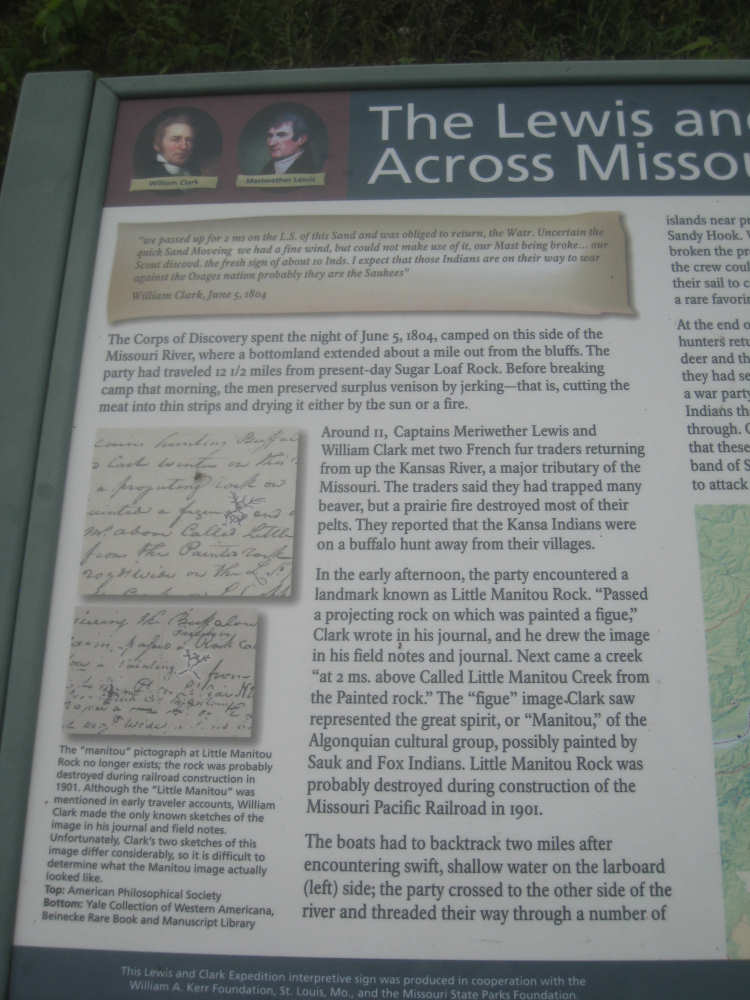 The Lewis and
Across Missou
William Clark
Meriwether Lewis
"we passed up for 2 ms on the L.S. of this Sand and was obliged to return, the Watr. Uncertain the
quick Sand Moveing we had a fine wind, but could not make use of it, our Mast being broke... our
Scout discovd. the fresh sign of about 10 Inds. I expect that those Indians are on their way to war
against the Osages nation probably they are the Saukees"
William Clark, June 5, 1804
The Corps of Discovery spent the night of June 5, 1804, camped on this side of the
Missouri River, where a bottomland extended about a mile out from the bluffs. The
party had traveled 12 1/2 miles from present-day Sugar Loaf Rock. Before breaking
camp that morning, the men preserved surplus venison by jerking—that is, cutting the
meat into thin strips and drying it either by the sun or a fire.
Around 11, Captains Meriwether Lewis and
William Clark met two French fur traders returning
from up the Kansas River, a major tributary of the
Missouri. The traders said they had trapped many
beaver, but a prairie fire destroyed most of their
pelts. They reported that the Kansa Indians were
on a buffalo hunt away from their villages.
In the early afternoon, the party encountered a
landmark known as Little Manitou Rock. "Passed
a projecting rock on which was painted a figue,"
Clark wrote in his journal, and he drew the image
in his field notes and journal. Next came a creek
"at 2 ms. above Called Little Manitou Creek from
the Painted rock." The "figue" image Clark saw
represented the great spirit, or "Manitou," of the
Algonquian cultural group, possibly painted by
Sauk and Fox Indians. Little Manitou Rock was
probably destroyed during construction of the
Missouri Pacific Railroad in 1901.
The boats had to backtrack two miles after
encountering swift, shallow water on the larboard
(left) side; the party crossed to the other side of the
river and threaded their way through a number of
The "manitou" pictograph at Little Manitou
Rock no longer exists; the rock was probably
destroyed during railroad construction in
1901. Although the "Little Manitou" was
mentioned in early traveler accounts, William
Clark made the only known sketches of the
image in his journal and field notes.
Unfortunately, Clark's two sketches of this
image differ considerably, so it is difficult to
determine what the Manitou image actually
looked like.
Top: American Philosophical Society
Bottom: Yale Collection of Western Americana,
Beinecke Rare Book and Manuscript Library
islands near pr
Sandy Hook. W
broken the pr
the crew coul
their sail to c
a rare favorin
At the end o
hunters retu
deer and th
they had se
a war party
Indians th
through. C
that these
band of S
to attack
This Lewis and Clark Expedition interpretive sign was produced in cooperation with the
William A. Kerr Foundation, St. Louis, Mo., and the Missouri State Parks Foundation.